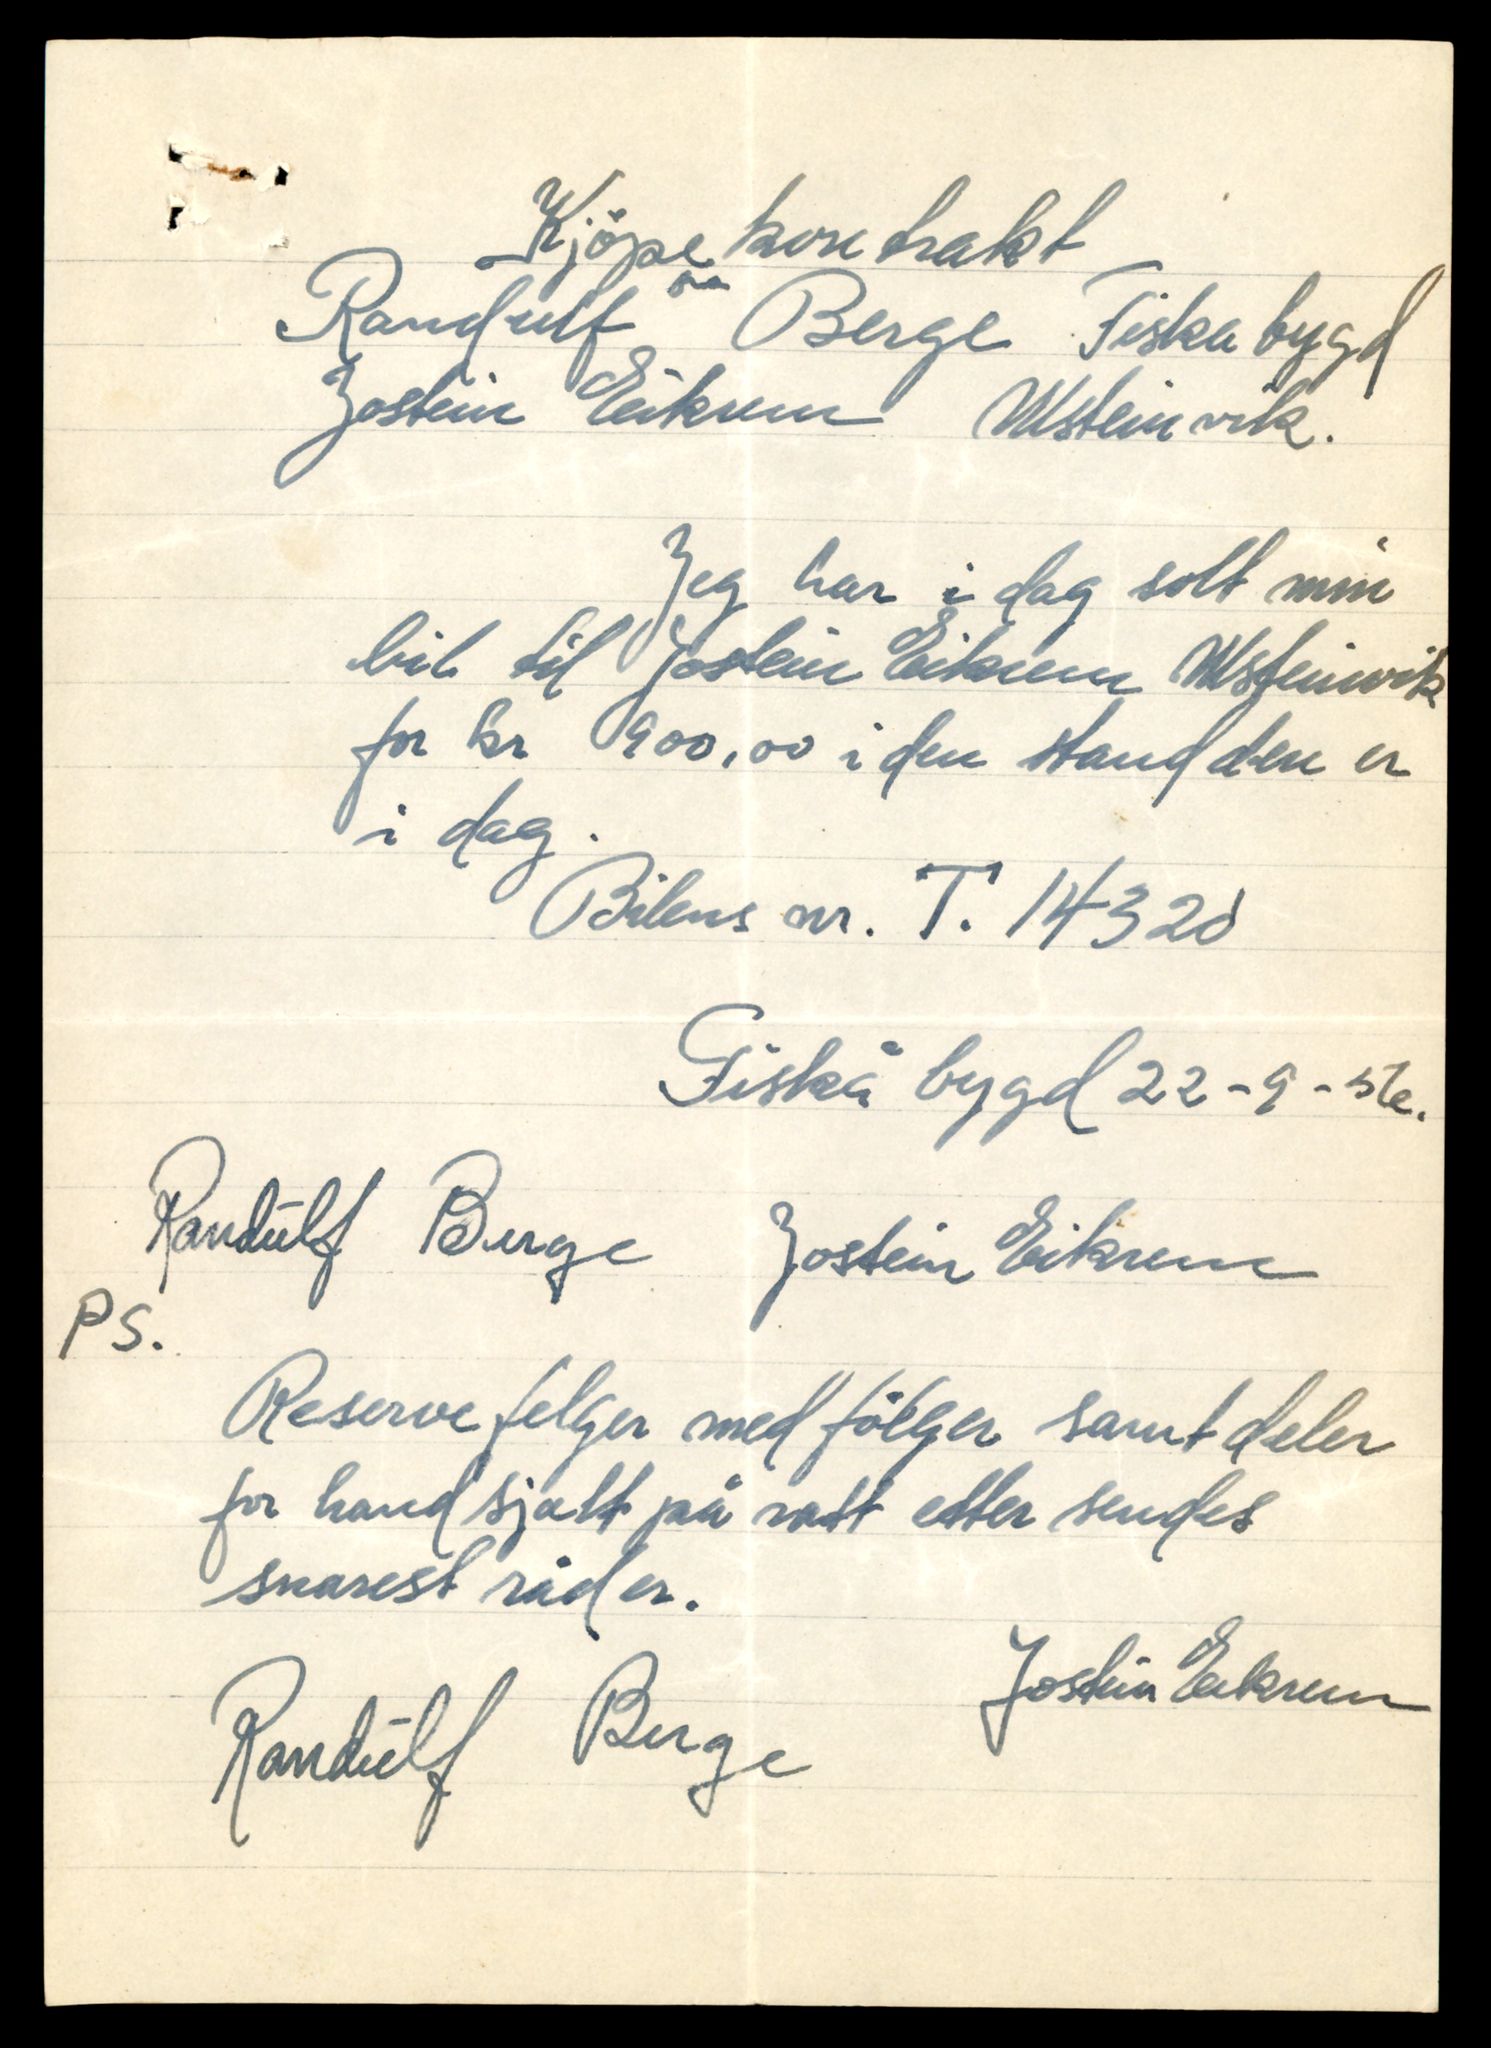 Kjöpe kontrakt
Randulf Berge Fiska bygd
Jostein Eikrem Ulsteinvik.
Jeg har i dag solt min
bil til Jostein Eikrem Ulsteinvik
for kr 900,00 i den stand den er
i dag.
Bilens nr. T. 14320
Fiskå bygd 22-9-56.
Randulf Berge Jostein Eikrem
PS.
Reserve felger med fölger samt deler
for hand sjalt på ratt etter sendes
snarest råd er.
Jostein Eikrem
Randulf Berge